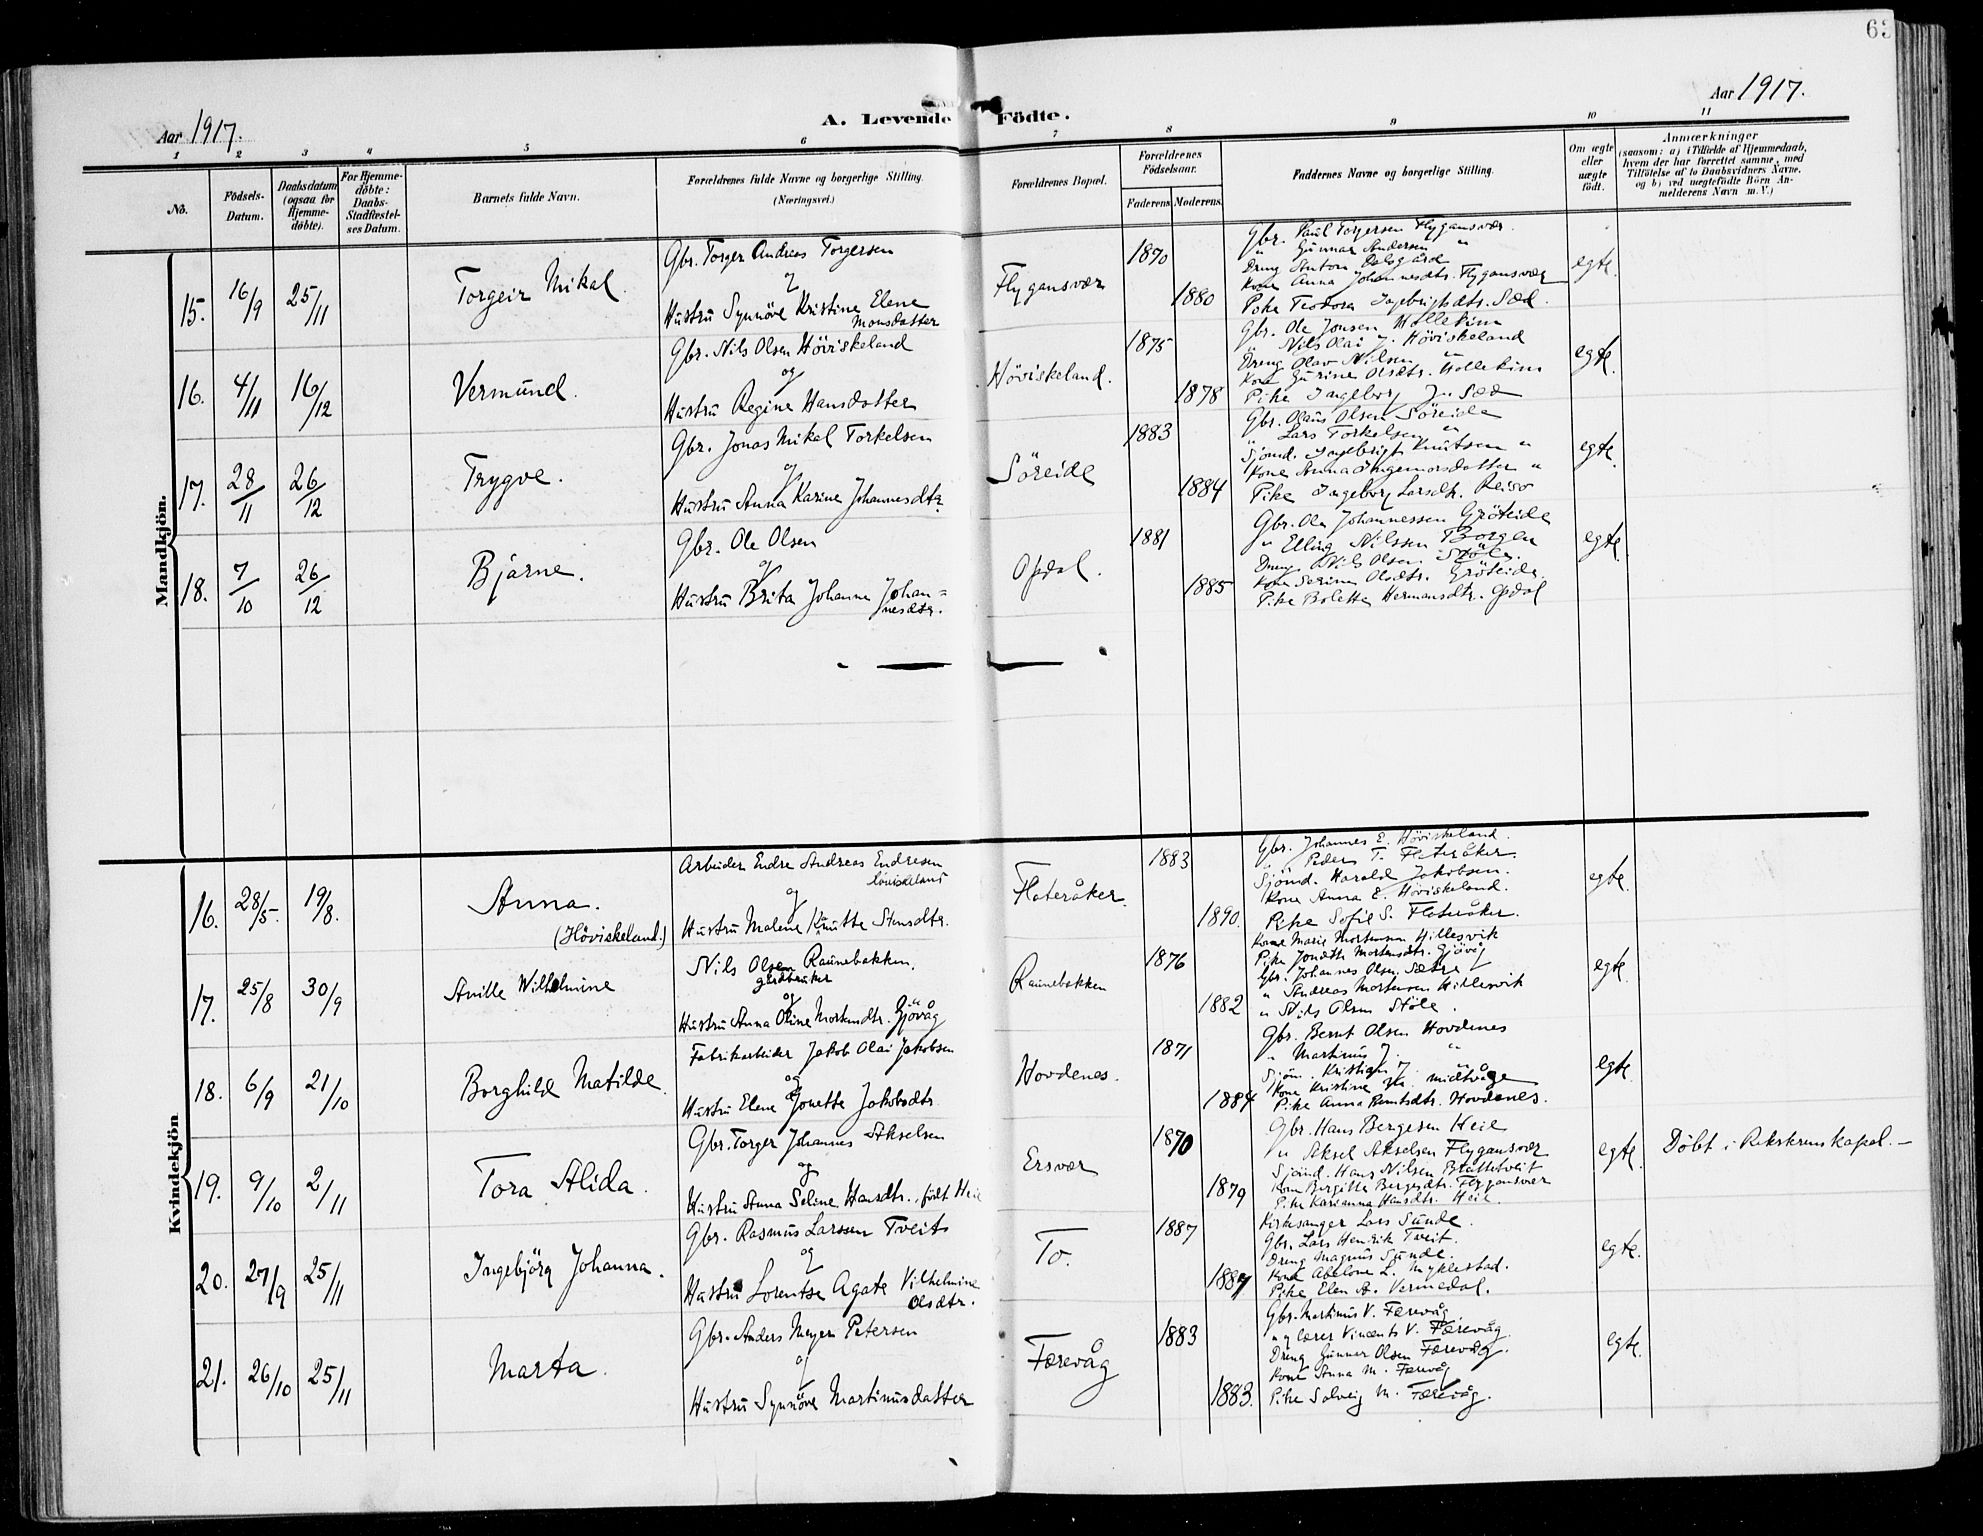 63
Aar 1917.
A. Levende Födte.
Aar 1917.
1 2 3 4 5 6 7 8 9 10 11
No.
Födsels-Datum.
Daabsdatum (ogsaa for Hjemme-døbte).
For Hjemme-døbte: Daabs-Stadfæstel-ses Datum.
Barnets fulde Navn.
Forældrenes fulde Navne og borgerlige Stilling. (Næringsvei.)
Forældrenes Bopæl.
Forældrenes Födselsaar.
Faderens. Moderens.
Faddernes Navne og borgerlige Stilling.
Om ægte eller uægte født.
Anmærkninger
(saasom: a) i Tilfælde af Hjemmedaab, hvem der har forrettet samme, med Tilföielse af to Daabsvidners Navne, og b) ved uægtefödte Börn An-melderens Navn m. V.)
Mandkjön.
15. 16/9 25/11 Torgeir Mikal.
Gbr. Torger Andreas Torgersen
og
Hustru Synnöve Kristine Elene
Monsdatter
Flygansvær 1870 1880
Gbr. Paul Torgersen Flygansvær.
" Gunnar Andersen "
Dreng Anton Dalsgård
Kone Anna Johannesdtr. Flygansvær
Pike Teodora Ingebrigtsdtr. Sæd.
egte.
16. 4/11 16/12 Vermund.
Gbr. Nils Olsen Höviskeland
og
Hustru Regine Hansdatter
Höviskeland. 1875 1878
Gbr. Ole Jonsen Hollekim
Nils Olai J. Höviskeland
Dreng Olav Nilsen "
Kone Gurine Olsdtr. Hollekim
Pike Ingeborg J. Sæd
egte.
17. 28/11 26/12 Trygve.
Gbr. Jonas Mikal Torkelsen
og
Hustru Anna Karine Johannesdtr.
Söreide 1883 1884
Gbr. Olaus Olsen Söreide
" Lars Torkelsen "
Sjömd. Ingebrigt Knutsen "
Kone Anna Ingemorsdatter "
Pike Ingeborg Larsdtr.
egte.
18. 7/10 26/12 Bjarne.
Gbr. Ole Olsen
og
Hustru Brita Johanne Johan=
nesdtr.
Opdal. 1881 1885
Gbr. Ole Johannessen Gröteide
" Elling Nilssen Borgen
Dreng Nils Olsen Stöle.
Kone Serine Olsdtr. Gröteide.
Pike Bolette Hermansdtr. Opdal
egte.
Kvindekjön
16. 28/5. 19/8. Anna.
(Höviskeland.)
Arbeider Endre Andreas Endresen
Höviskeland
og
Hustru Malene Knutte Stensdtr.
Flateråker. 1883 1890.
Gbr. Johannes E. Höviskeland.
" Peder T. Flateråker.
Sjömd. Harald Jakobsen.
Kone Anna E. Höviskeland.
Pike Sofie S. Flateråker.
egte.
17. 25/8 30/9 Anille Wilhelmine
Nils Olsen Raunebakken.
gårdbruker
og
Hustru Anna Oline Mortensdtr. Gjövåg
Raunebakken 1876 1882
Kone Marie Mortensen Hillesvik
Pike Jonette Mortensdtr. Gjövåg
Gbr. Johannes Olsen Sætre
" Andreas Mortensen Hillesvik
" Nils Olsen Stöle.
egte.
18. 6/9 21/10 Borghild Matilde.
Fabrikarbeider Jakob Olai Jakobsen
og
Hustru Elene Jonette Jakobsdtr.
Hovdenes. 1871 1884
Gbr. Bernt Olsen Hovdenes
" Martinus J. "
Sjöm. Kristian J. "
Kone Kristine Midtvåge
Pike Anna Berntsdtr. Hovdenes.
egte.
19. 9/10 2/11 Tora Alida.
Gbr. Torger Johannes Akselsen
og
Hustru Anna Seline Hansdtr., födt Heie
Ersvær 1870 1879
Gbr. Hans Bergesen Heie
" Aksel Akselsen Flygansvær
Sjömd. Hans Nilsen Brattetveit
Kone Birgitte Bergesdtr. Flygansvær
Pike Karianna Hansdtr. Heie.
egte. Döbt i Rekskrenskapel. —
20. 27/9 25/11 Ingebjörg Johanna.
Gbr. Rasmus Larssen Tveit
og
Hustru Lorentse Agate Vilhelmine
Olsdtr.
To. 1887 1887
Kirkesanger Lars Sunde.
Gbr. Lars Henrik Tveit.
Dreng Magnus Sunde.
Kone Abelone L. Myklestad.
Pike Elen A. Vermedal.
egte.
21. 26/10 25/11 Marta.
Gbr. Anders Meyer Petersen
og
Hustru Synnöve Martinusdatter
Færevåg 1883 1883.
Gbr. Martinus V. Færevåg
" og lærer Vincents V. Færevåg.
Dreng Gunnar Olsen Færevåg.
Kone Anna M. Færevåg
Pike Solveig M. Færevåg.
egte.